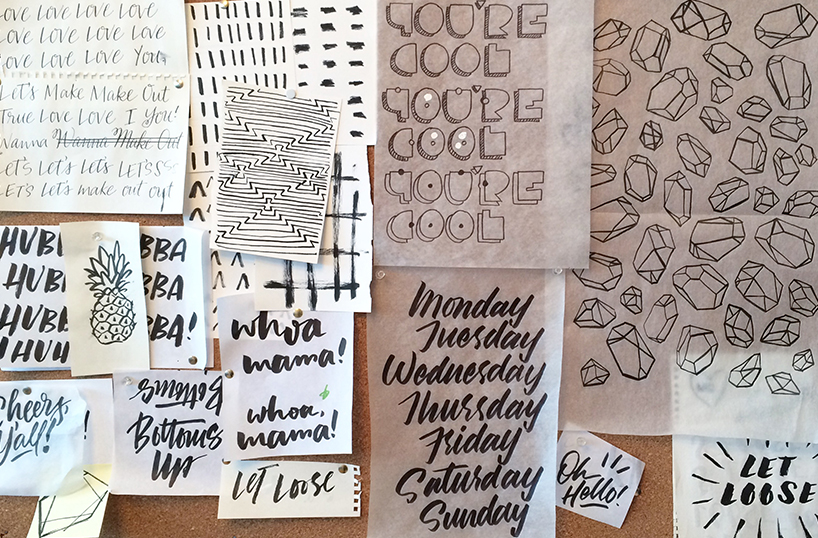 LOVE LOVE LOVE LOVE
LOVE LOVE LOVE LOVE
LOVE LOVE LOVE You
Let's Make Make Out
True Love Love I You!
Wanna Wanna Make Out
Let's Let's Lets LETSSS
LETS Let's make out out
YOU'RE
COOL
YOU'RE
COOL
YOU'RE
COOL
HUBB BBA
HUBB BBA
HUBB BBA!
HUB
whoa
mama!
whoa,
mama!
Monday
Tuesday
Wednesday
Thursday
Friday
Saturday
Sunday
Cheers,
Y'all!
Bottoms
Bottoms
Up
LET LOOSE
Oh
Hello!
LET
LOOSE